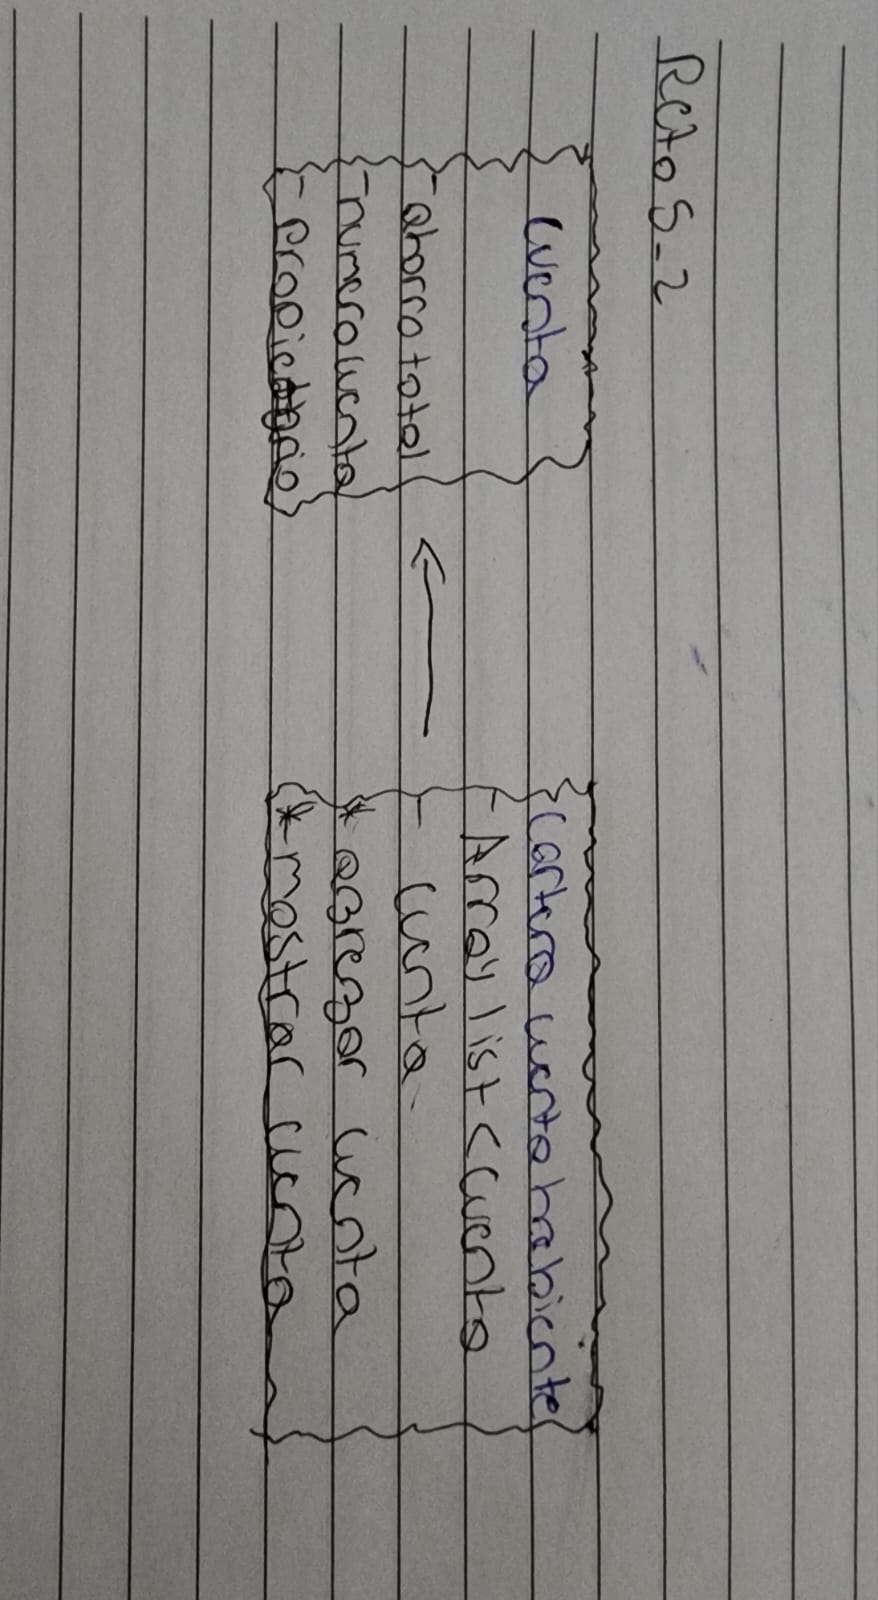 Reto 5-2
Cuenta
- ahorro total
- numero cuenta
- propietario
Cartera cuenta habiente
- Array list < Cuenta
- Cuenta
* agregar cuenta
* mostrar cuenta